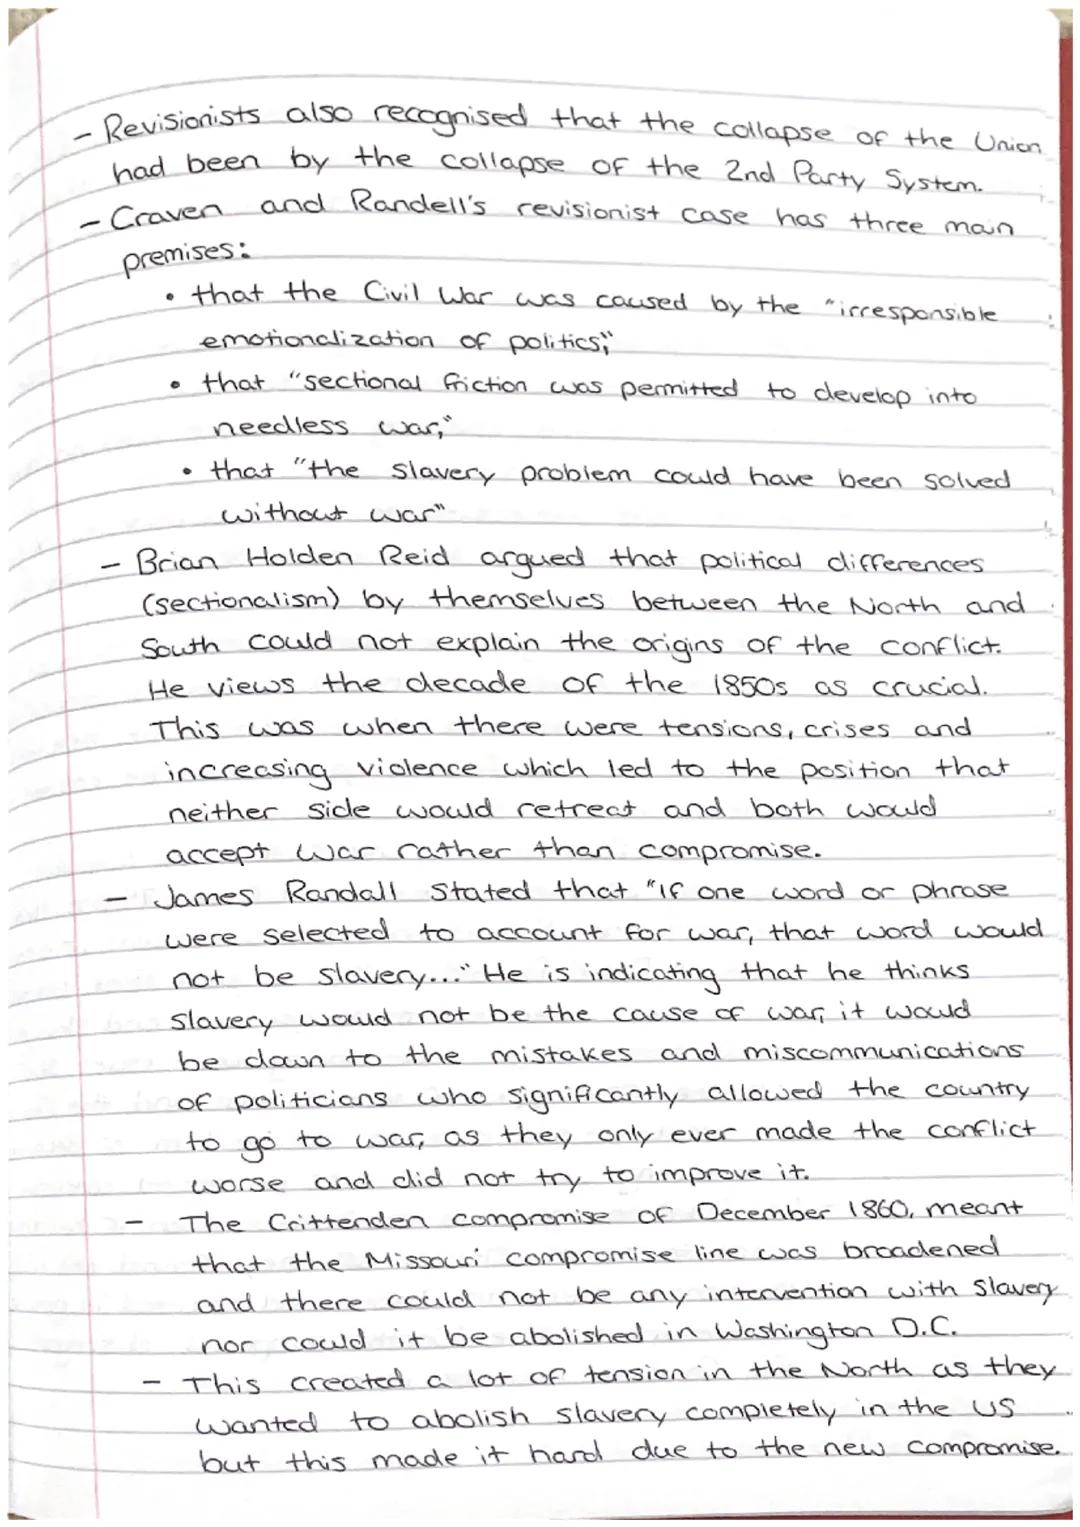 - Revisionists also recognised that the collapse of the Union
had been by the collapse of the 2nd Party System.
- Craven and Randell's revisionist case has three main
premises:
• that the Civil War was caused by the "irresponsible
emotionalization of politics;"
• that "sectional friction was permitted to develop into
needless war;"
• that "the slavery problem could have been solved
without war"
- Brian Holden Reid argued that political differences
(sectionalism) by themselves between the North and
South could not explain the origins of the conflict.
He views the decade of the 1850s as crucial.
This was when there were tensions, crises and
increasing violence which led to the position that
neither side would retreat and both would
accept war rather than compromise.
- James Randall stated that "If one word or phrase
were selected to account for war, that word would
not be slavery..." He is indicating that he thinks
slavery would not be the cause of war, it would
be down to the mistakes and miscommunications
of politicians who significantly allowed the country
to go to war, as they only ever made the conflict
worse and did not try to improve it.
- The Crittenden compromise of December 1860, meant
that the Missouri compromise line was broadened
and there could not be any intervention with slavery
nor could it be abolished in Washington D.C.
- This created a lot of tension in the North as they
wanted to abolish slavery completely in the US
but this made it hard due to the new compromise.